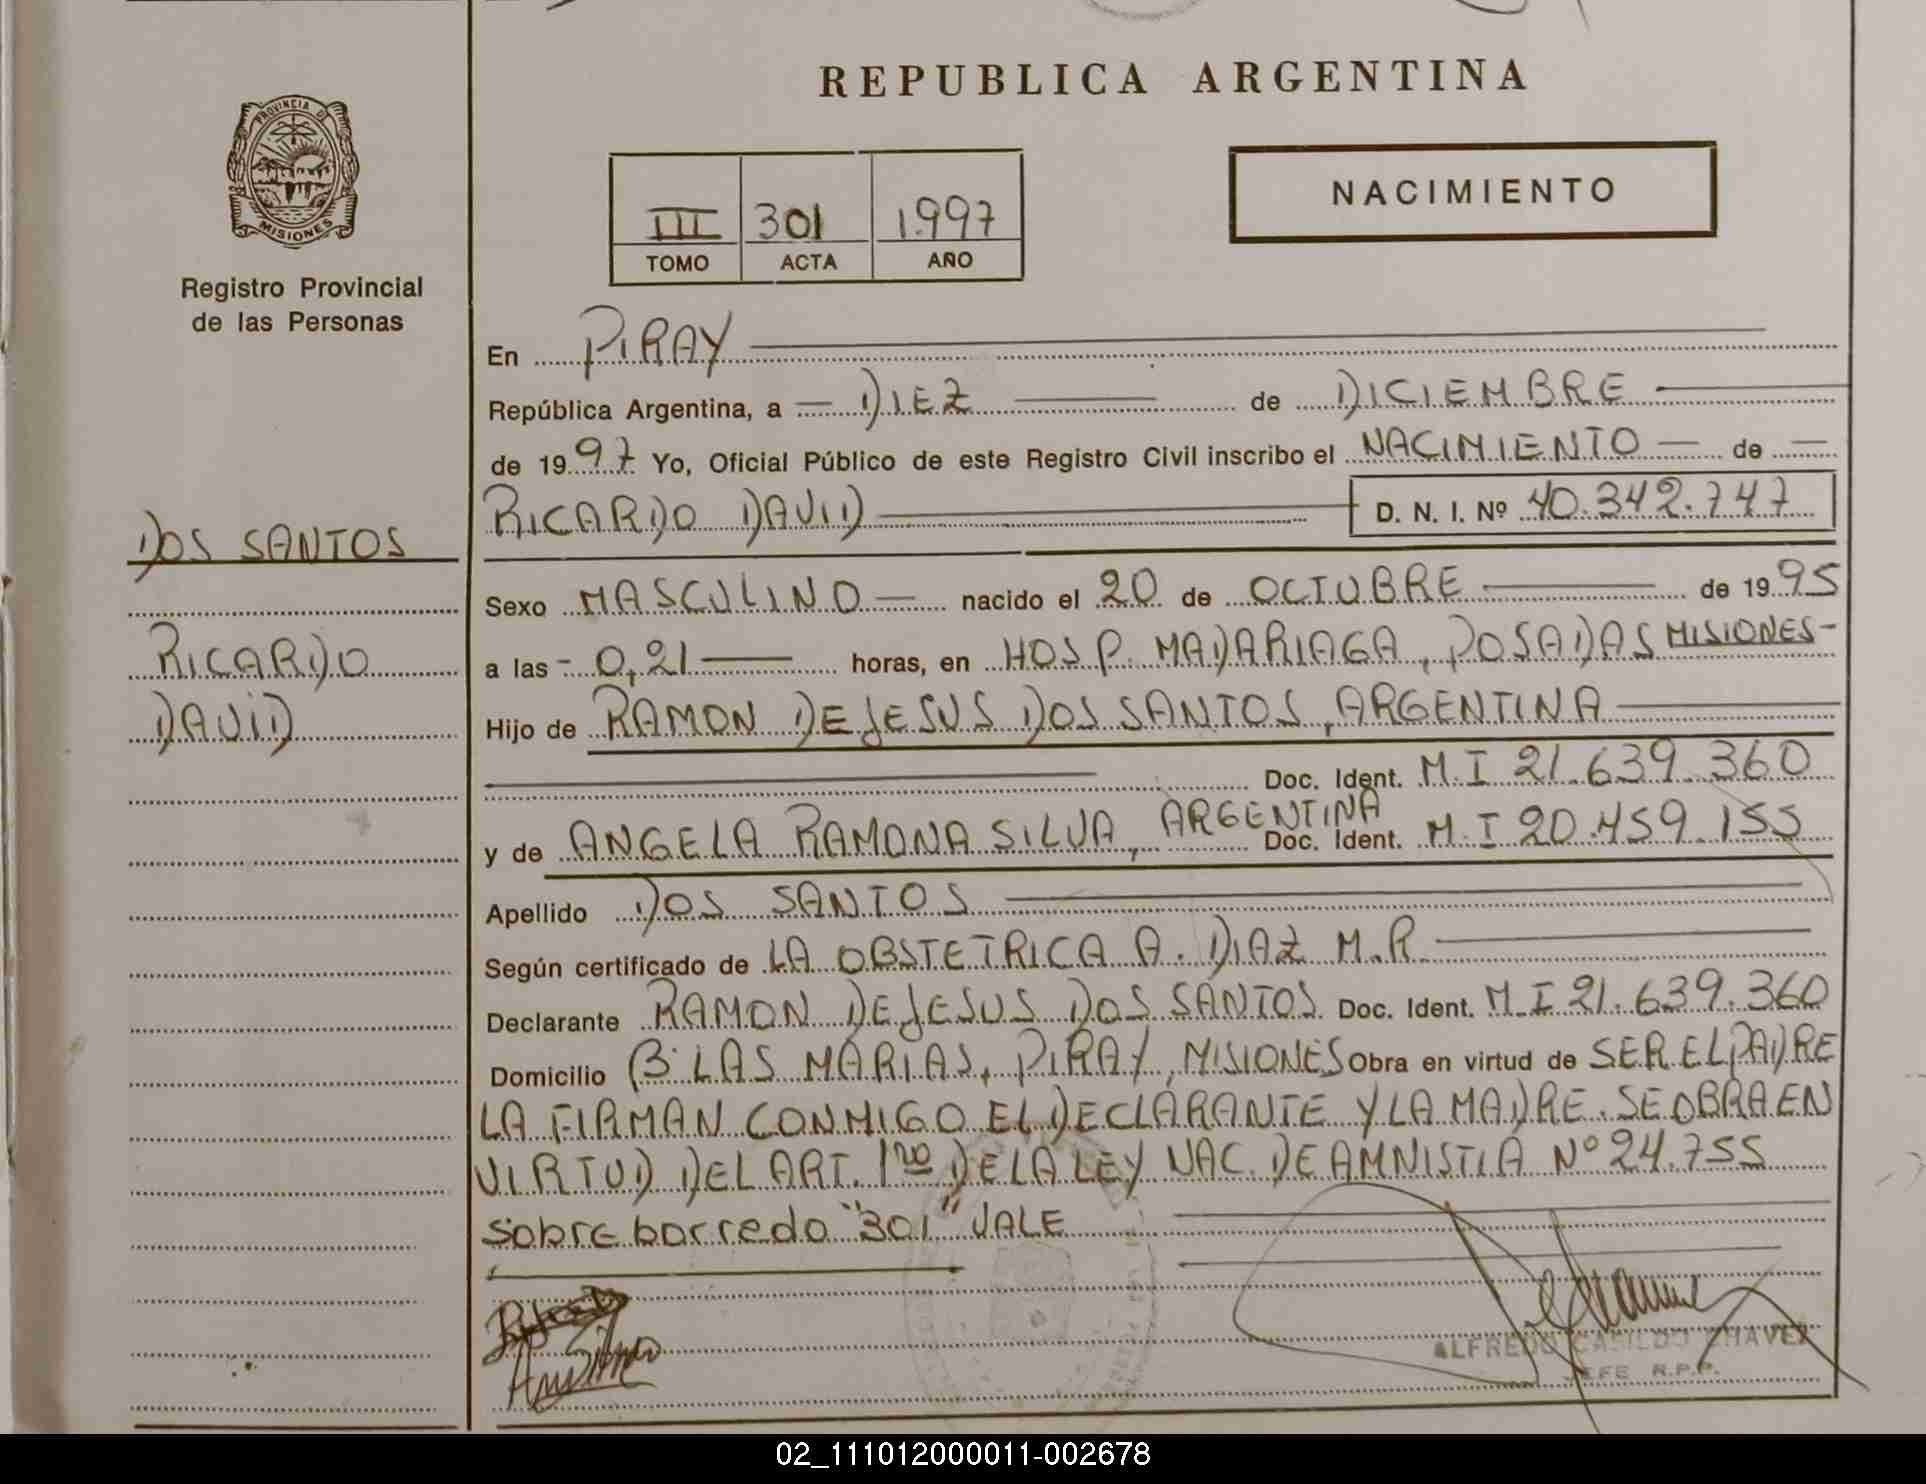 REPUBLICA ARGENTINA
PROVINCIA DE
MISIONES
Registro Provincial
de las Personas
III 301 1.997
TOMO ACTA AÑO
NACIMIENTO
DOS SANTOS
RICARDO
DAVID
En PIRAY
República Argentina, a DIEZ de DICIEMBRE
de 1997 Yo, Oficial Público de este Registro Civil inscribo el NACIMIENTO de
RICARDO DAVID D. N. I. Nº 40.342.747
Sexo MASCULINO nacido el 20 de OCTUBRE de 1995
a las 0,21 horas, en HOSP. MADARIAGA, POSADAS MISIONES-
Hijo de RAMON DE JESUS DOS SANTOS, ARGENTINA
Doc. Ident. M.I 21.639.360
y de ANGELA RAMONA SILVA, ARGENTINA Doc. Ident. M.I 20.459.155
Apellido DOS SANTOS
Según certificado de LA OBSTETRICA A. DIAZ M.R
Declarante RAMON DE JESUS DOS SANTOS Doc. Ident. M.I 21.639.360
Domicilio Bº LAS MARIAS, PIRAY, MISIONES Obra en virtud de SER EL PADRE
LA FIRMAN CONMIGO EL DECLARANTE Y LA MADRE. SE OBRA EN
VIRTUD DEL ART. 1ro DE LA LEY NAC. DE AMNISTIA Nº 24.755
sobre borredo "301" VALE
ALFREDO CAMILDO CHAVEZ
JEFE R.P.P.
02_111012000011-002678